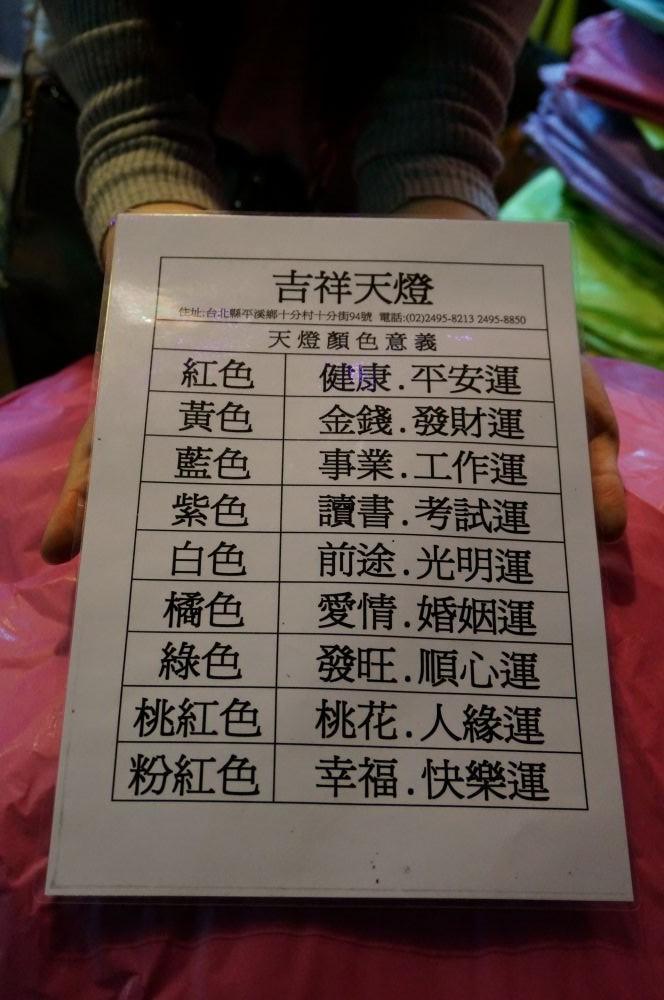 吉祥天燈
住址:台北縣平溪鄉十分村十分街94號 電話:(02)2495-8213 2495-8850
天燈顏色意義
紅色 健康.平安運
黃色 金錢.發財運
藍色 事業.工作運
紫色 讀書.考試運
白色 前途.光明運
橘色 愛情.婚姻運
綠色 發旺.順心運
桃紅色 桃花.人緣運
粉紅色 幸福.快樂運